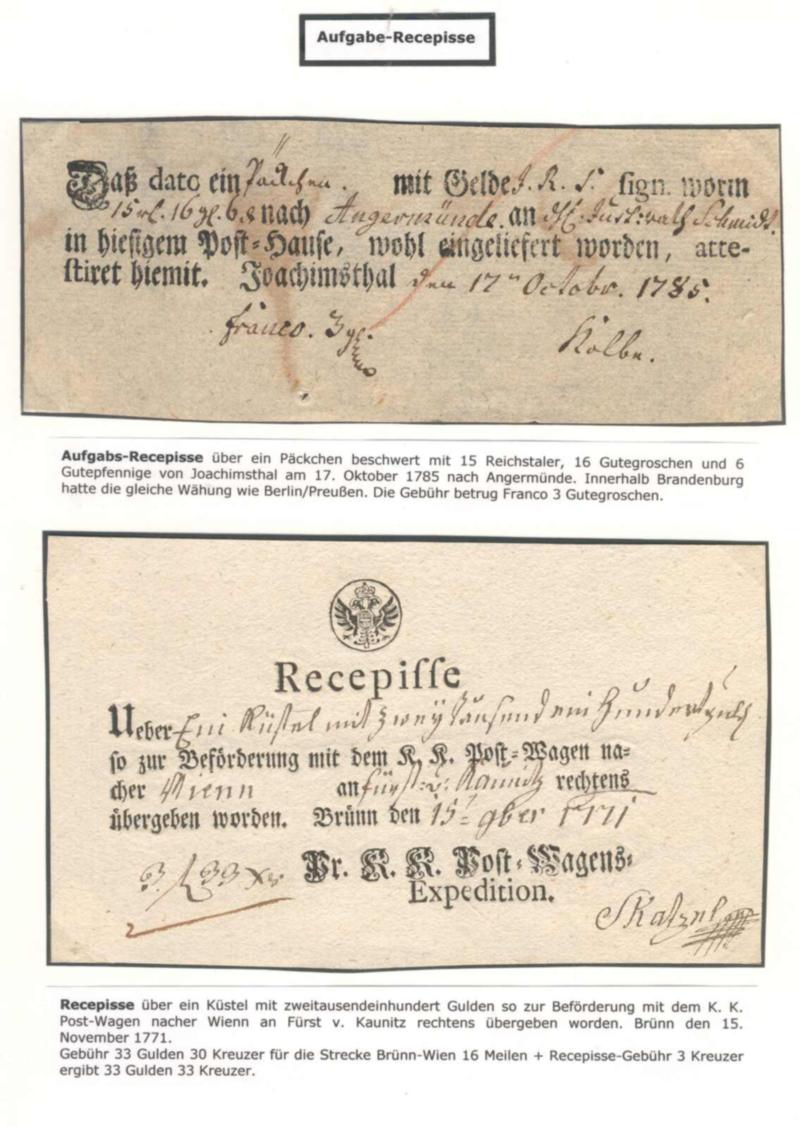 Aufgabe-Recepisse
Daß dato ein Päckchen. mit Gelde J. R. S. sign. worin
15 rl. 16 gl. 6 ₰ nach Angermünde. an Schmidt.
in hiesigem Post-Hause, wohl eingeliefert worden, atte-
stiret hiemit. Joachimsthal den 17 Octobr. 1785.
franco. 3 gl. Kolbe.
Aufgabs-Recepisse über ein Päckchen beschwert mit 15 Reichstaler, 16 Gutegroschen und 6
Gutepfennige von Joachimsthal am 17. Oktober 1785 nach Angermünde. Innerhalb Brandenburg
hatte die gleiche Wähung wie Berlin/Preußen. Die Gebühr betrug Franco 3 Gutegroschen.
Recepisse
Ueber Ein Küstel mit zweytausend ein Hundert
so zur Beförderung mit dem K. K. Post-Wagen na-
cher Wienn an Fürst v. Kaunitz rechtens
übergeben worden. Brünn den 15 9ber 1771
3 f 33 Xr Pr. K. K. Post-Wagens-
Expedition.
Recepisse über ein Küstel mit zweitausendeinhundert Gulden so zur Beförderung mit dem K. K.
Post-Wagen nacher Wienn an Fürst v. Kaunitz rechtens übergeben worden. Brünn den 15.
November 1771.
Gebühr 33 Gulden 30 Kreuzer für die Strecke Brünn-Wien 16 Meilen + Recepisse-Gebühr 3 Kreuzer
ergibt 33 Gulden 33 Kreuzer.